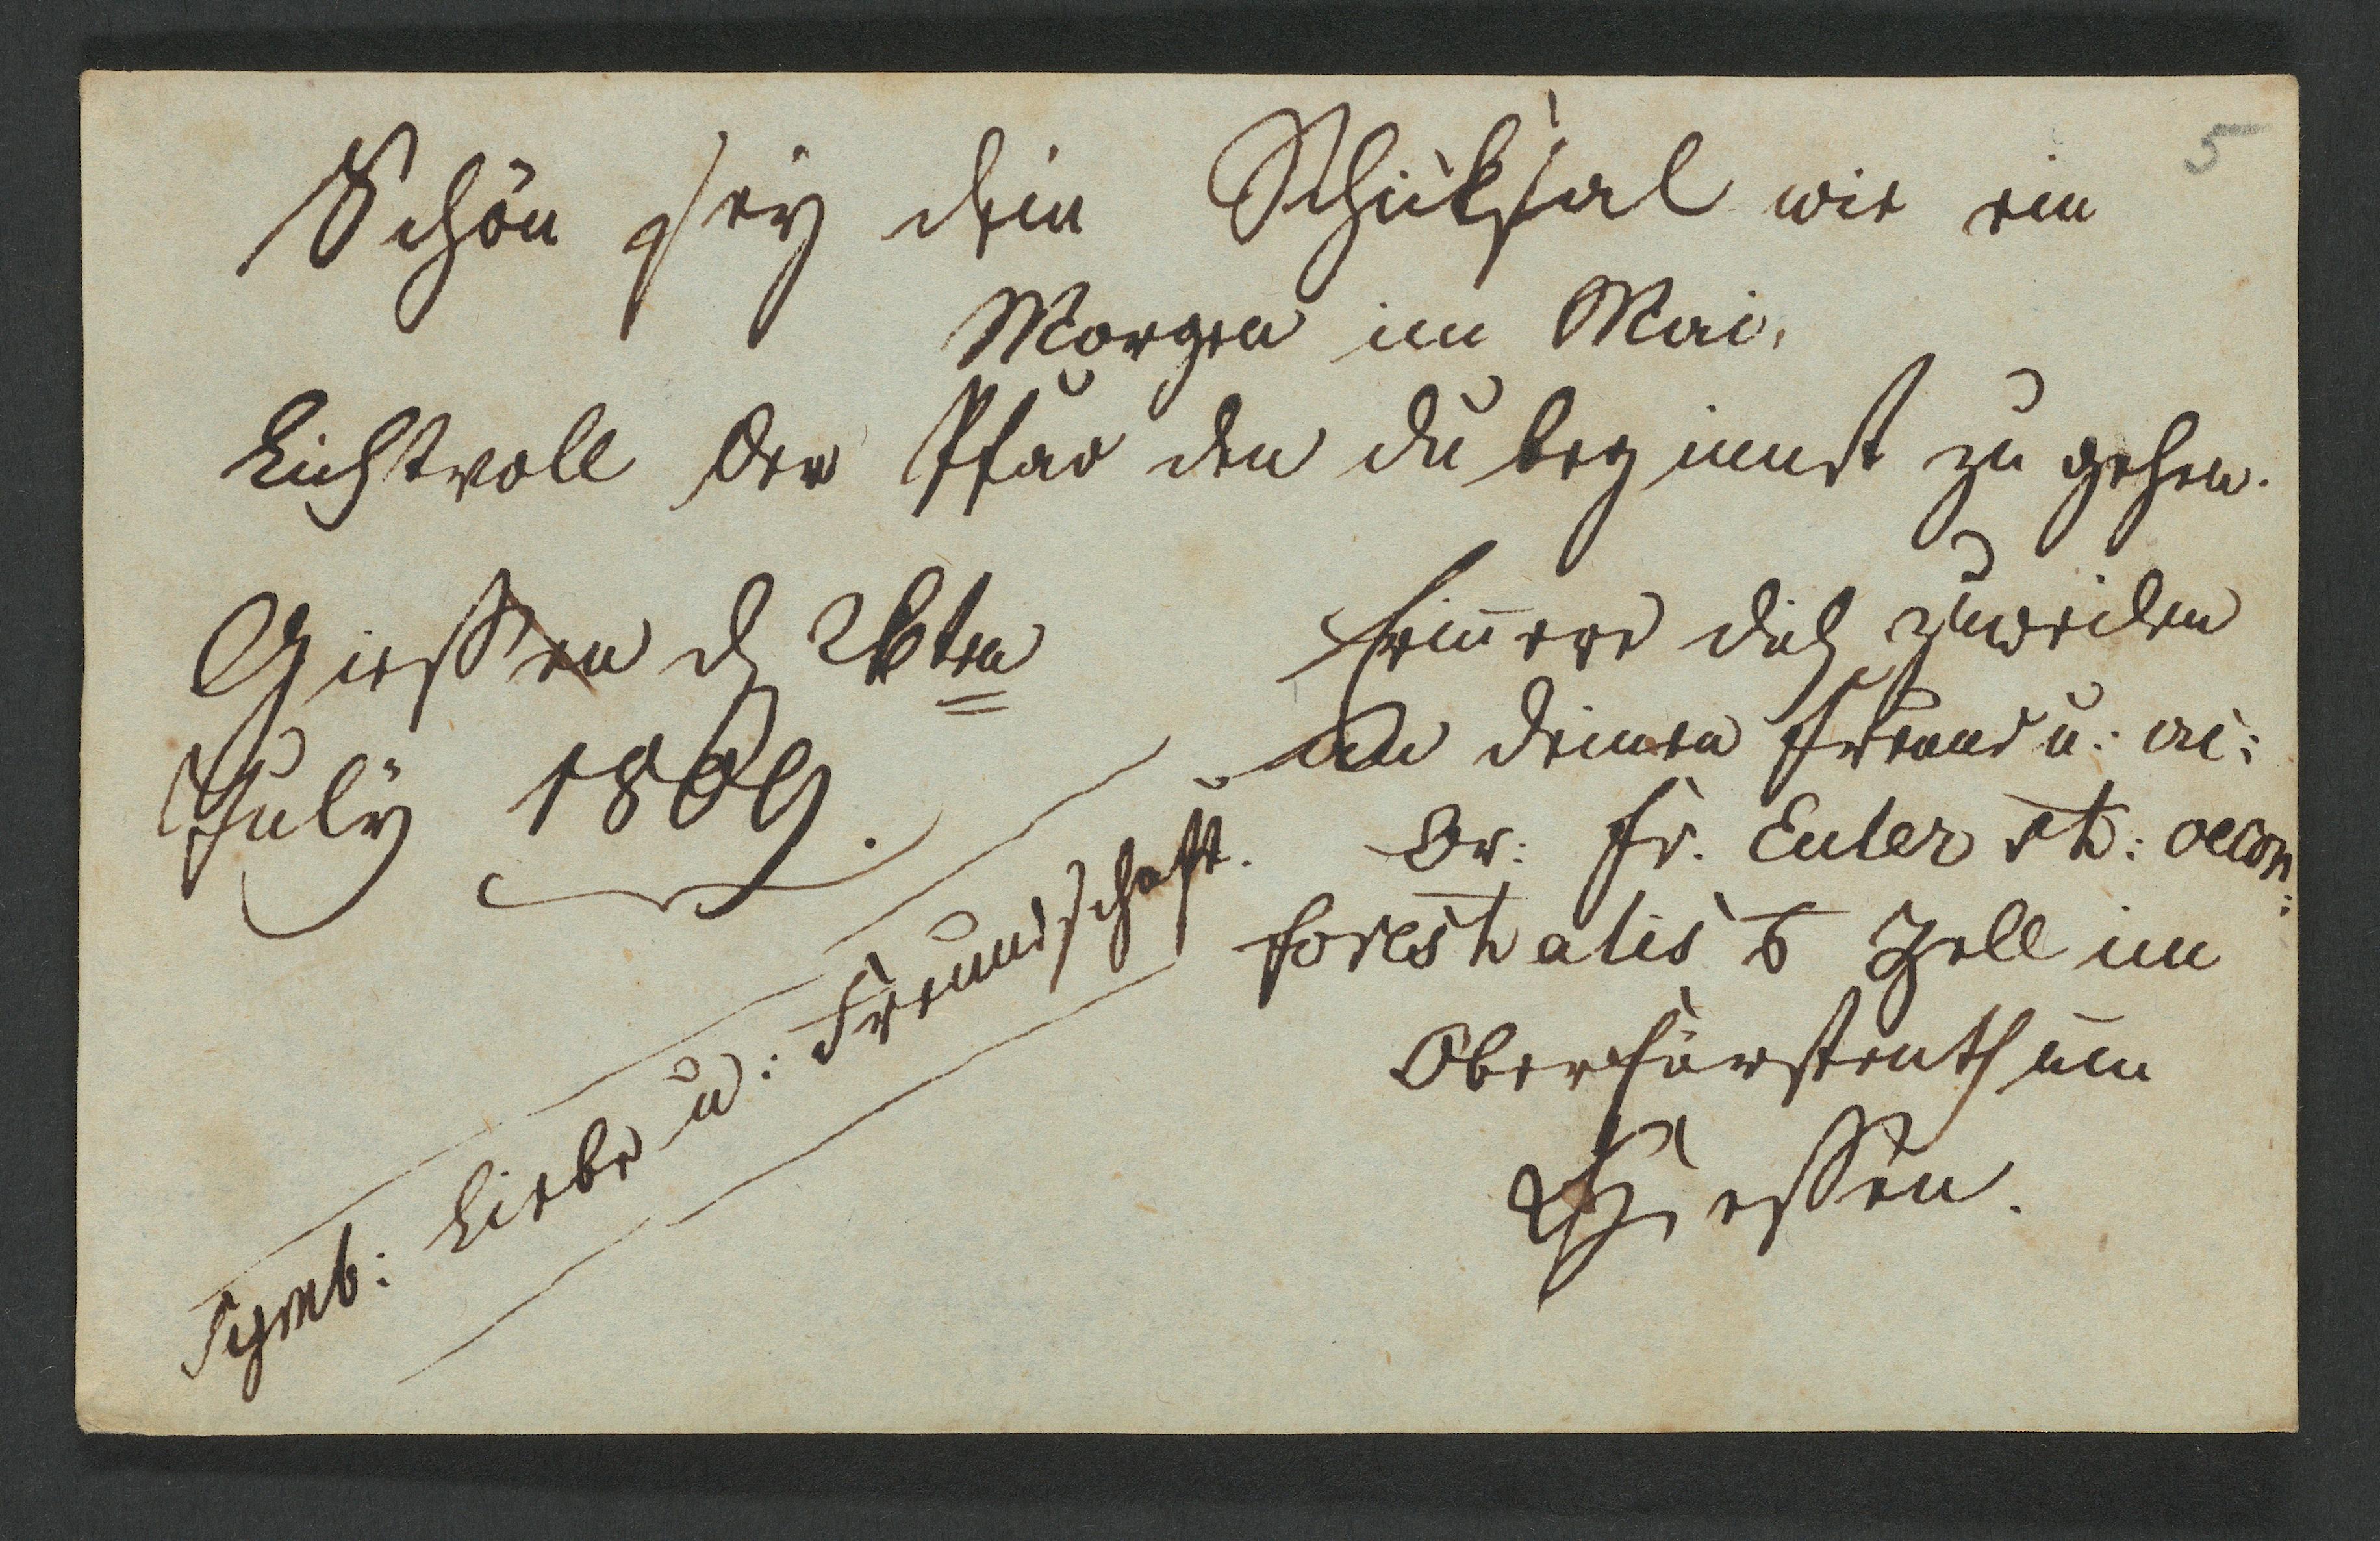 5
Schön sey dein Schiksal wie ein
Morgen im Mai,
Lichtvoll der Pfad den du beginnst zu gehen.
Giessen d 26ten
July 1809.
Erinnere dich zuweilen
an deinen Freund u:
Br: Fr. Euler st: oecon:
forestalis Zell im
Oberfürstenthum
Hessen.
Symb: Liebe u: Freundschaft.